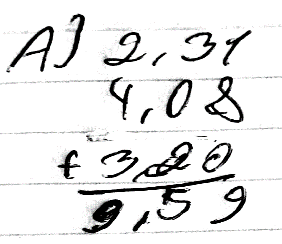 A) 2,31
4,08
+ 3,20
9,59